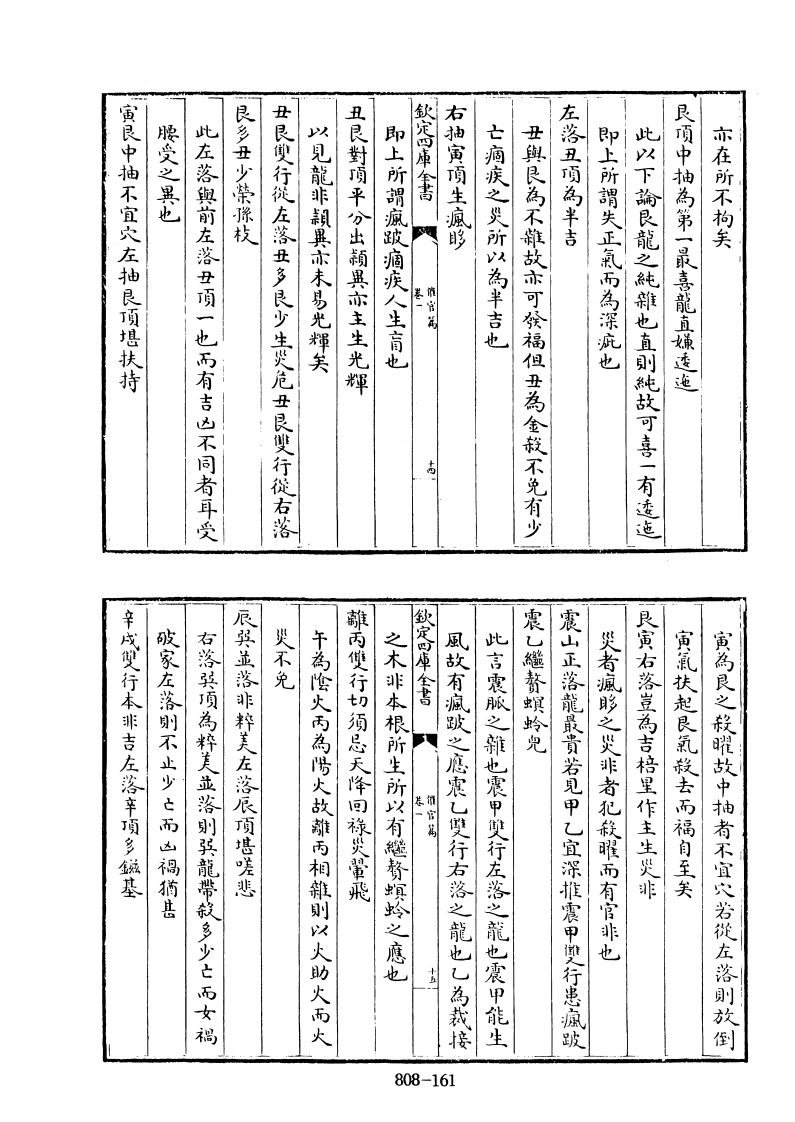 亦在所不拘矣
艮頂中抽為第一最喜龍直嫌逶迤
此以下論艮龍之純雜也直則純故可喜一有逶迤
即上所謂失正氣而為深疵也
左落丑頂為半吉
丑與艮為不雜故亦可發福但丑為金殺不免有少
亡痼疾之災所以為半吉也
右抽寅頂生瘋
欽定四庫全書
催官篇
卷一
十四
即上所謂瘋跛痼疾人生盲也
丑艮對頂平分出頴異亦主生光輝
以見龍非頴異亦未易光輝矣
丑艮雙行從左落丑多艮少生災危丑艮雙行從右落
艮多丑少榮孫枝
此左落與前左落丑頂一也而有吉凶不同者耳受
腰受之異也
寅艮中抽不宜穴左抽艮頂堪扶持
寅為艮之殺曜故中抽者不宜穴若從左落則放倒
寅氣扶起艮氣殺去而福自至矣
艮寅右落豈為吉棓里作主生災非
災者瘋之災非者犯殺曜而有官非也
震山正落龍最貴若見甲乙宜深推震甲雙行患瘋跛
震乙繼贅螟蛉兒
此言震脈之雜也震甲雙行左落之龍也震甲能生
風故有瘋跛之應震乙雙行右落之龍也乙為裁接
欽定四庫全書
催官篇
卷一
十五
之木非本根所生所以有繼贅螟蛉之應也
離丙雙行切須忌天降回祿災翬飛
午為陰火丙為陽火故離丙相雜則以火助火而火
災不免
辰巽並落非粹美左落辰頂堪嗟悲
右落巽頂為粹美並落則巽龍帶殺多少亡而女禍
破家左落則不止少亡而凶禍猶甚
辛戌雙行本非吉左落辛頂多鎡基
808-161